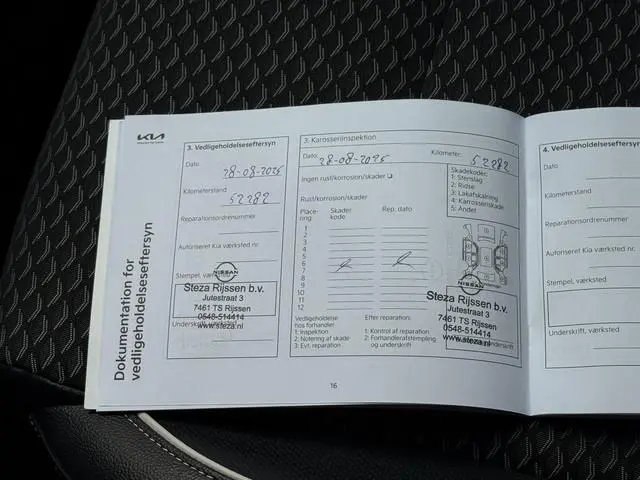 KIA
3. Vedligeholdelseseftersyn
Dato
28-08-2025
Kilometerstand
52282
Reparationsordrenummer
Autoriseret Kia værksted nr.
Stempel, værksted
NISSAN
Steza Rijssen b.v.
Jutestraat 3
7461 TS Rijssen
0548-514414
www.steza.nl
Underskrift
Dokumentation for
vedligeholdelseseftersyn
3. Karosseriinspektion
Dato: 28-08-2025 Kilometer: 52282
Ingen rust/korrosion/skader
Rust/korrosion/skader
Place-ring Skader kode Rep. dato
1
2
3
4
5
6
7
8
9
10
11
12
Skadekoder:
1: Stenslag
2: Ridse
3: Lakafskalning
4: Karrosseriskade
5: Andet
NISSAN
Steza Rijssen b.v.
Jutestraat 3
7461 TS Rijssen
0548-514414
www.steza.nl
Vedligeholdelse
hos forhandler
1: Inspektion
2: Notering af skade
3: Evt. reparation
Efter reparation:
1: Kontrol af reparation
2: Forhandlerafstempling
og underskrift
16
4. Vedligeholdelseseftersyn
Dato
Kilometerstand
Reparationsordrenummer
Autoriseret Kia værksted
Stempel, værksted
Underskrift, værksted